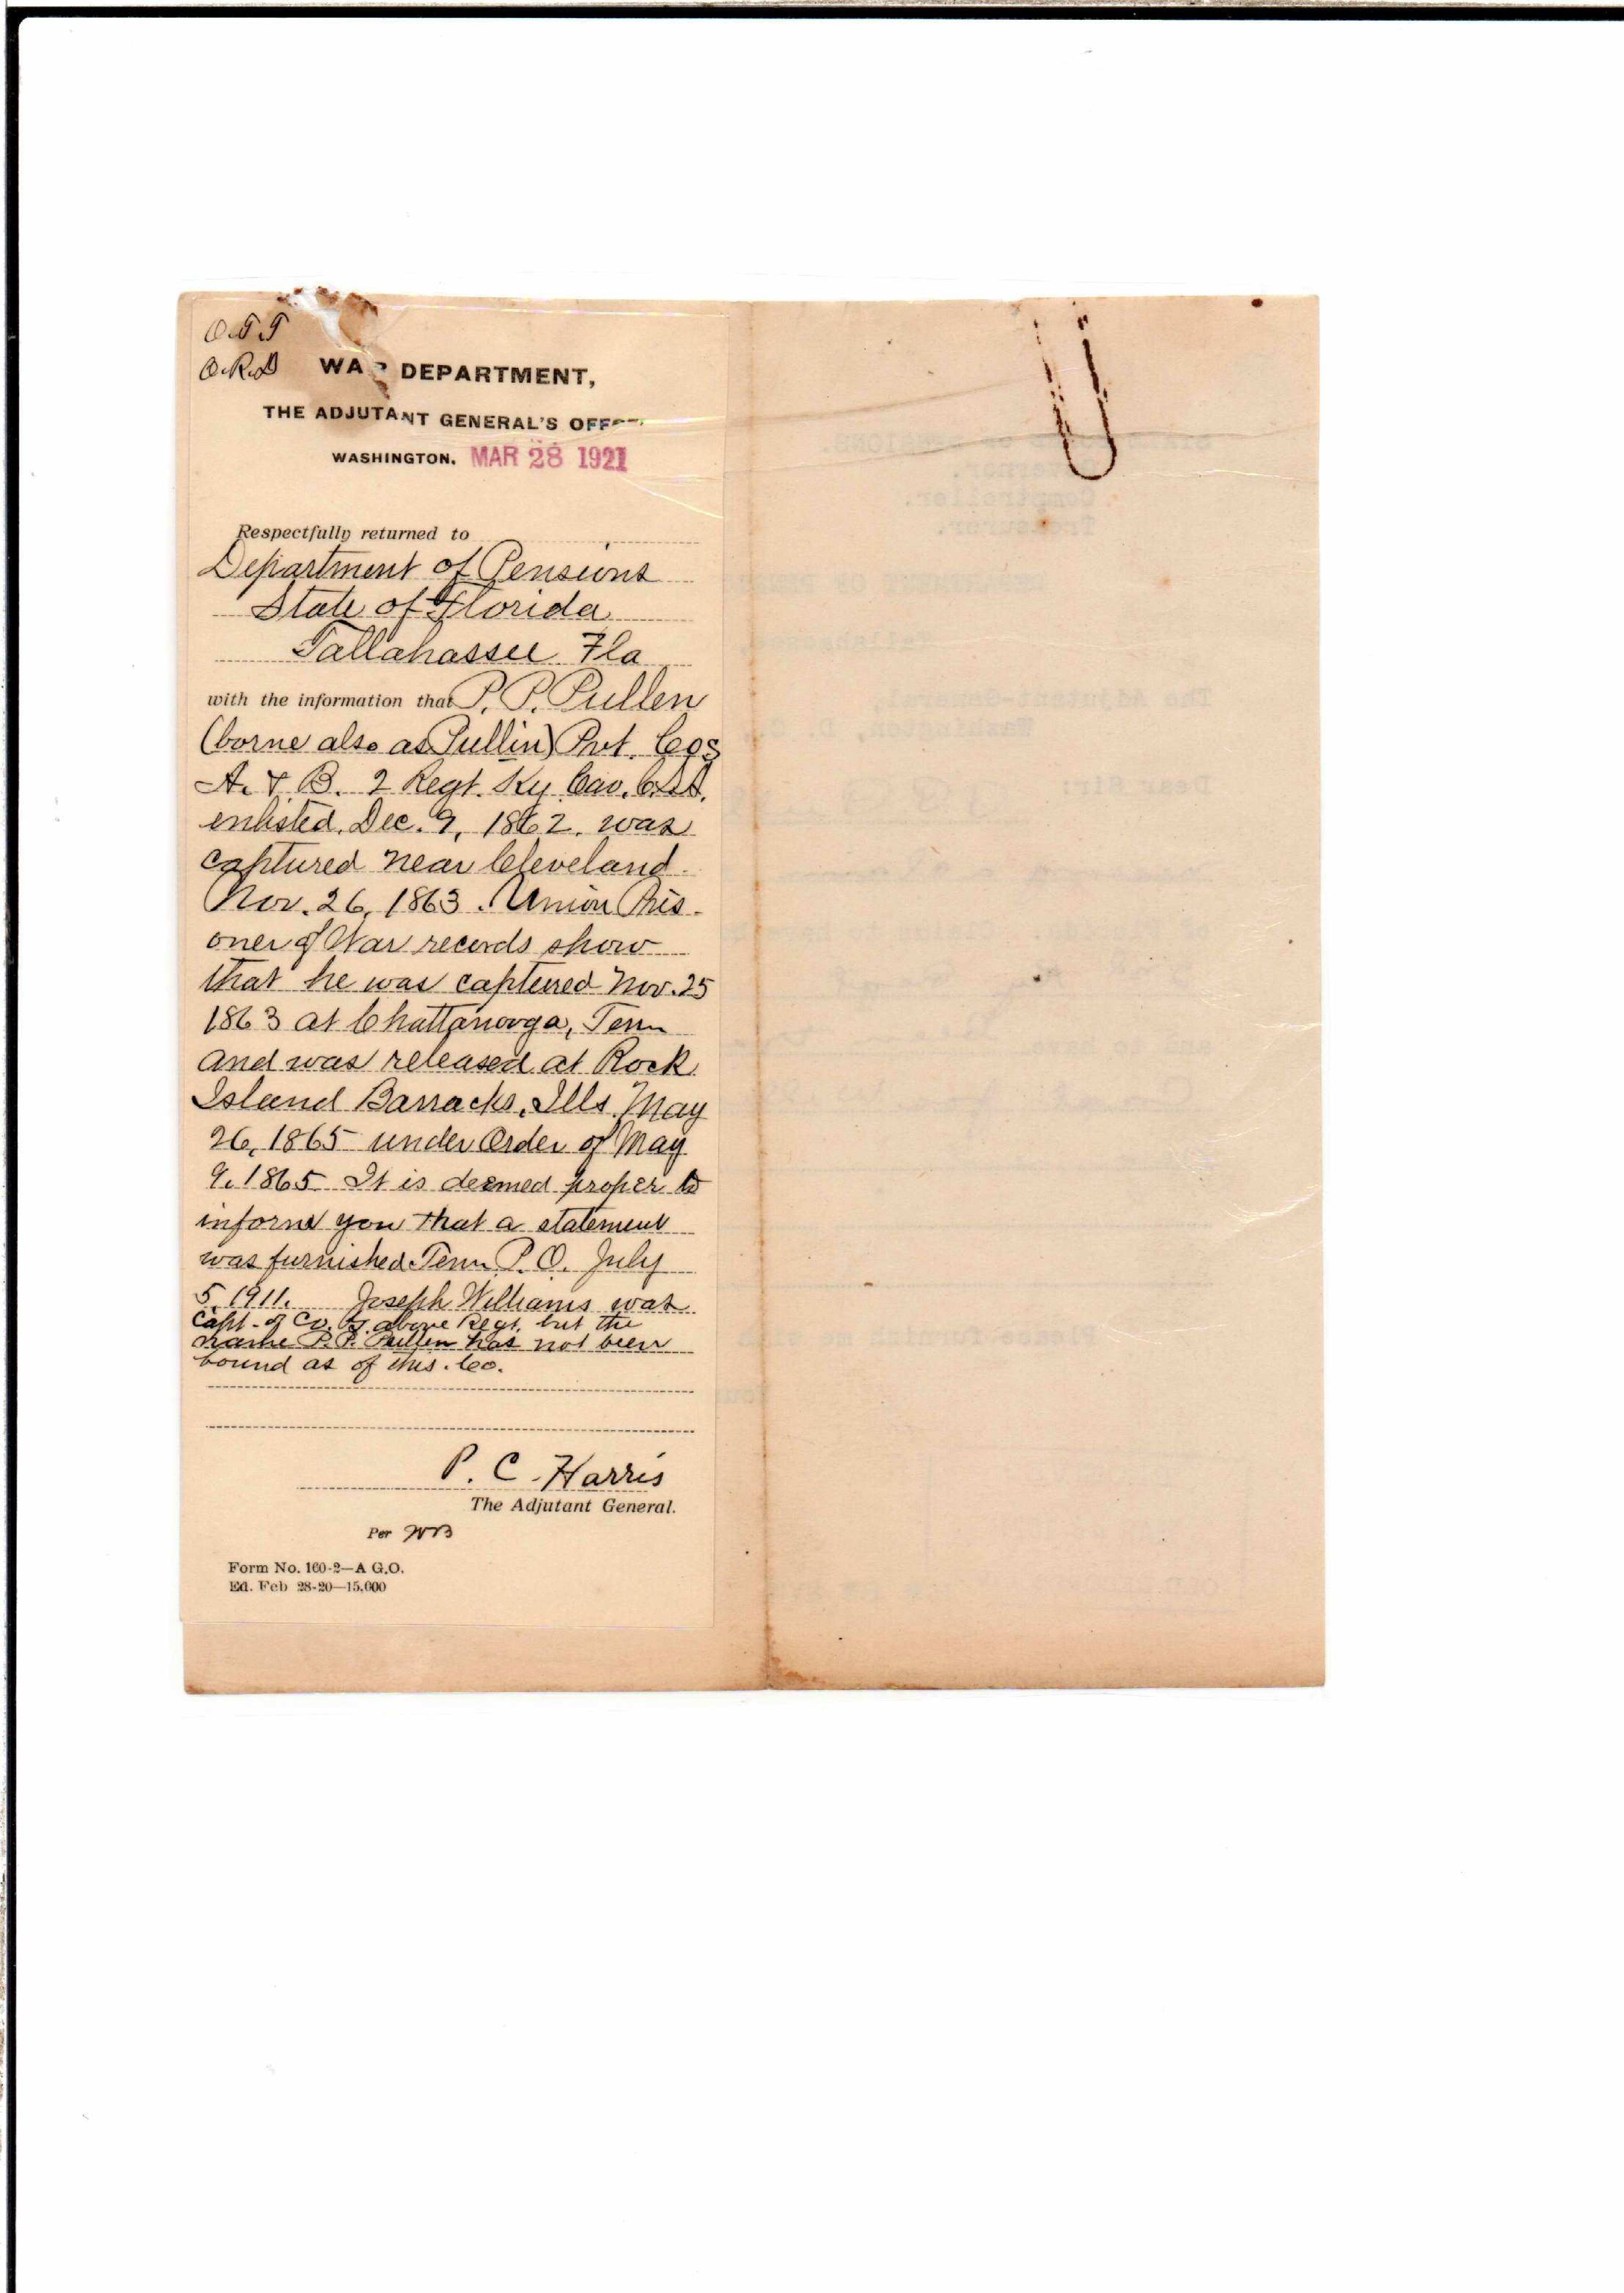 O.T.T
O.R.D
WAR DEPARTMENT,
THE ADJUTANT GENERAL'S OFF
WASHINGTON. MAR 28 1921
Respectfully returned to
Department of Pensions
State of Florida
Tallahassee Fla
with the information that P. P. Pullen
(borne also as Pullin) Pvt. Cos
A. & B. 2 Regt. Ky. Cav. C.S.A.
enlisted Dec. 9, 1862. was
captured near Cleveland
Nov. 26, 1863. Union Pris-
oner of War records show
that he was captured Nov. 25
1863 at Chattanooga, Tenn
and was released at Rock
Island Barracks, Ills. May
26, 1865 under Order of May
9, 1865 It is deemed proper to
inform you that a statement
was furnished Tenn P. O. July
5, 1911. Joseph Williams was
Capt. of Co. above Regt. but the
name P. P. Pullen has not been
found as of this Co.
P. C. Harris
The Adjutant General.
Per WB
Form No. 160-2—A G.O.
Ed. Feb 28-20—15,000
OF PENSIONS.
Comptroller.
Treasurer.
The Adjutant-General,
Washington, D. C.
Dear Sir:
and to have